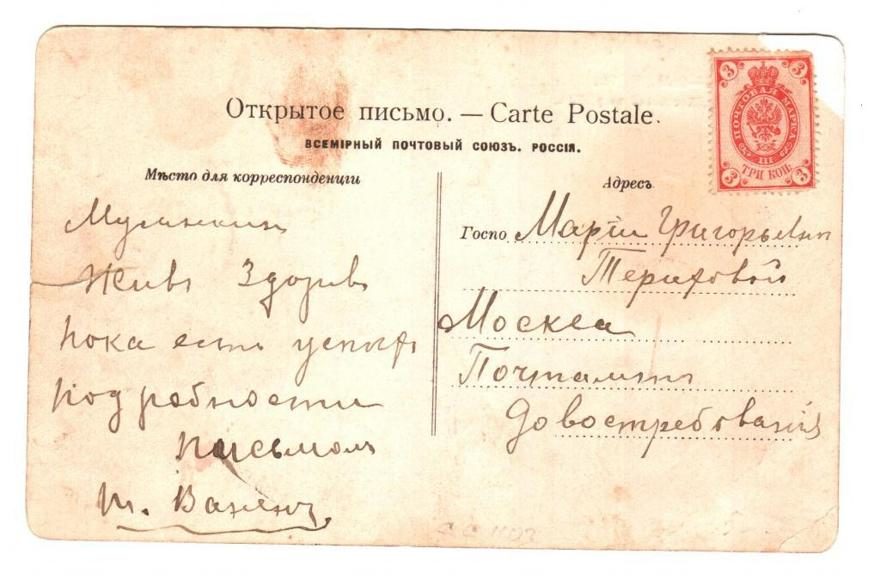 Открытое письмо. — Carte Postale.
ВСЕМІРНЫЙ ПОЧТОВЫЙ СОЮЗЪ. РОССІЯ.
Мѣсто для корреспонденціи
Живъ Здоровъ
пока есть успѣхъ
подробности
письмомъ
т. Ваненъ
Адресъ
Госпо Маріи Григорьевнѣ
Териховой
Москва
Почтамтъ
до востребованія
3 3
ПОЧТОВАЯ МАРКА
III
ТРИ КОП.
3 3